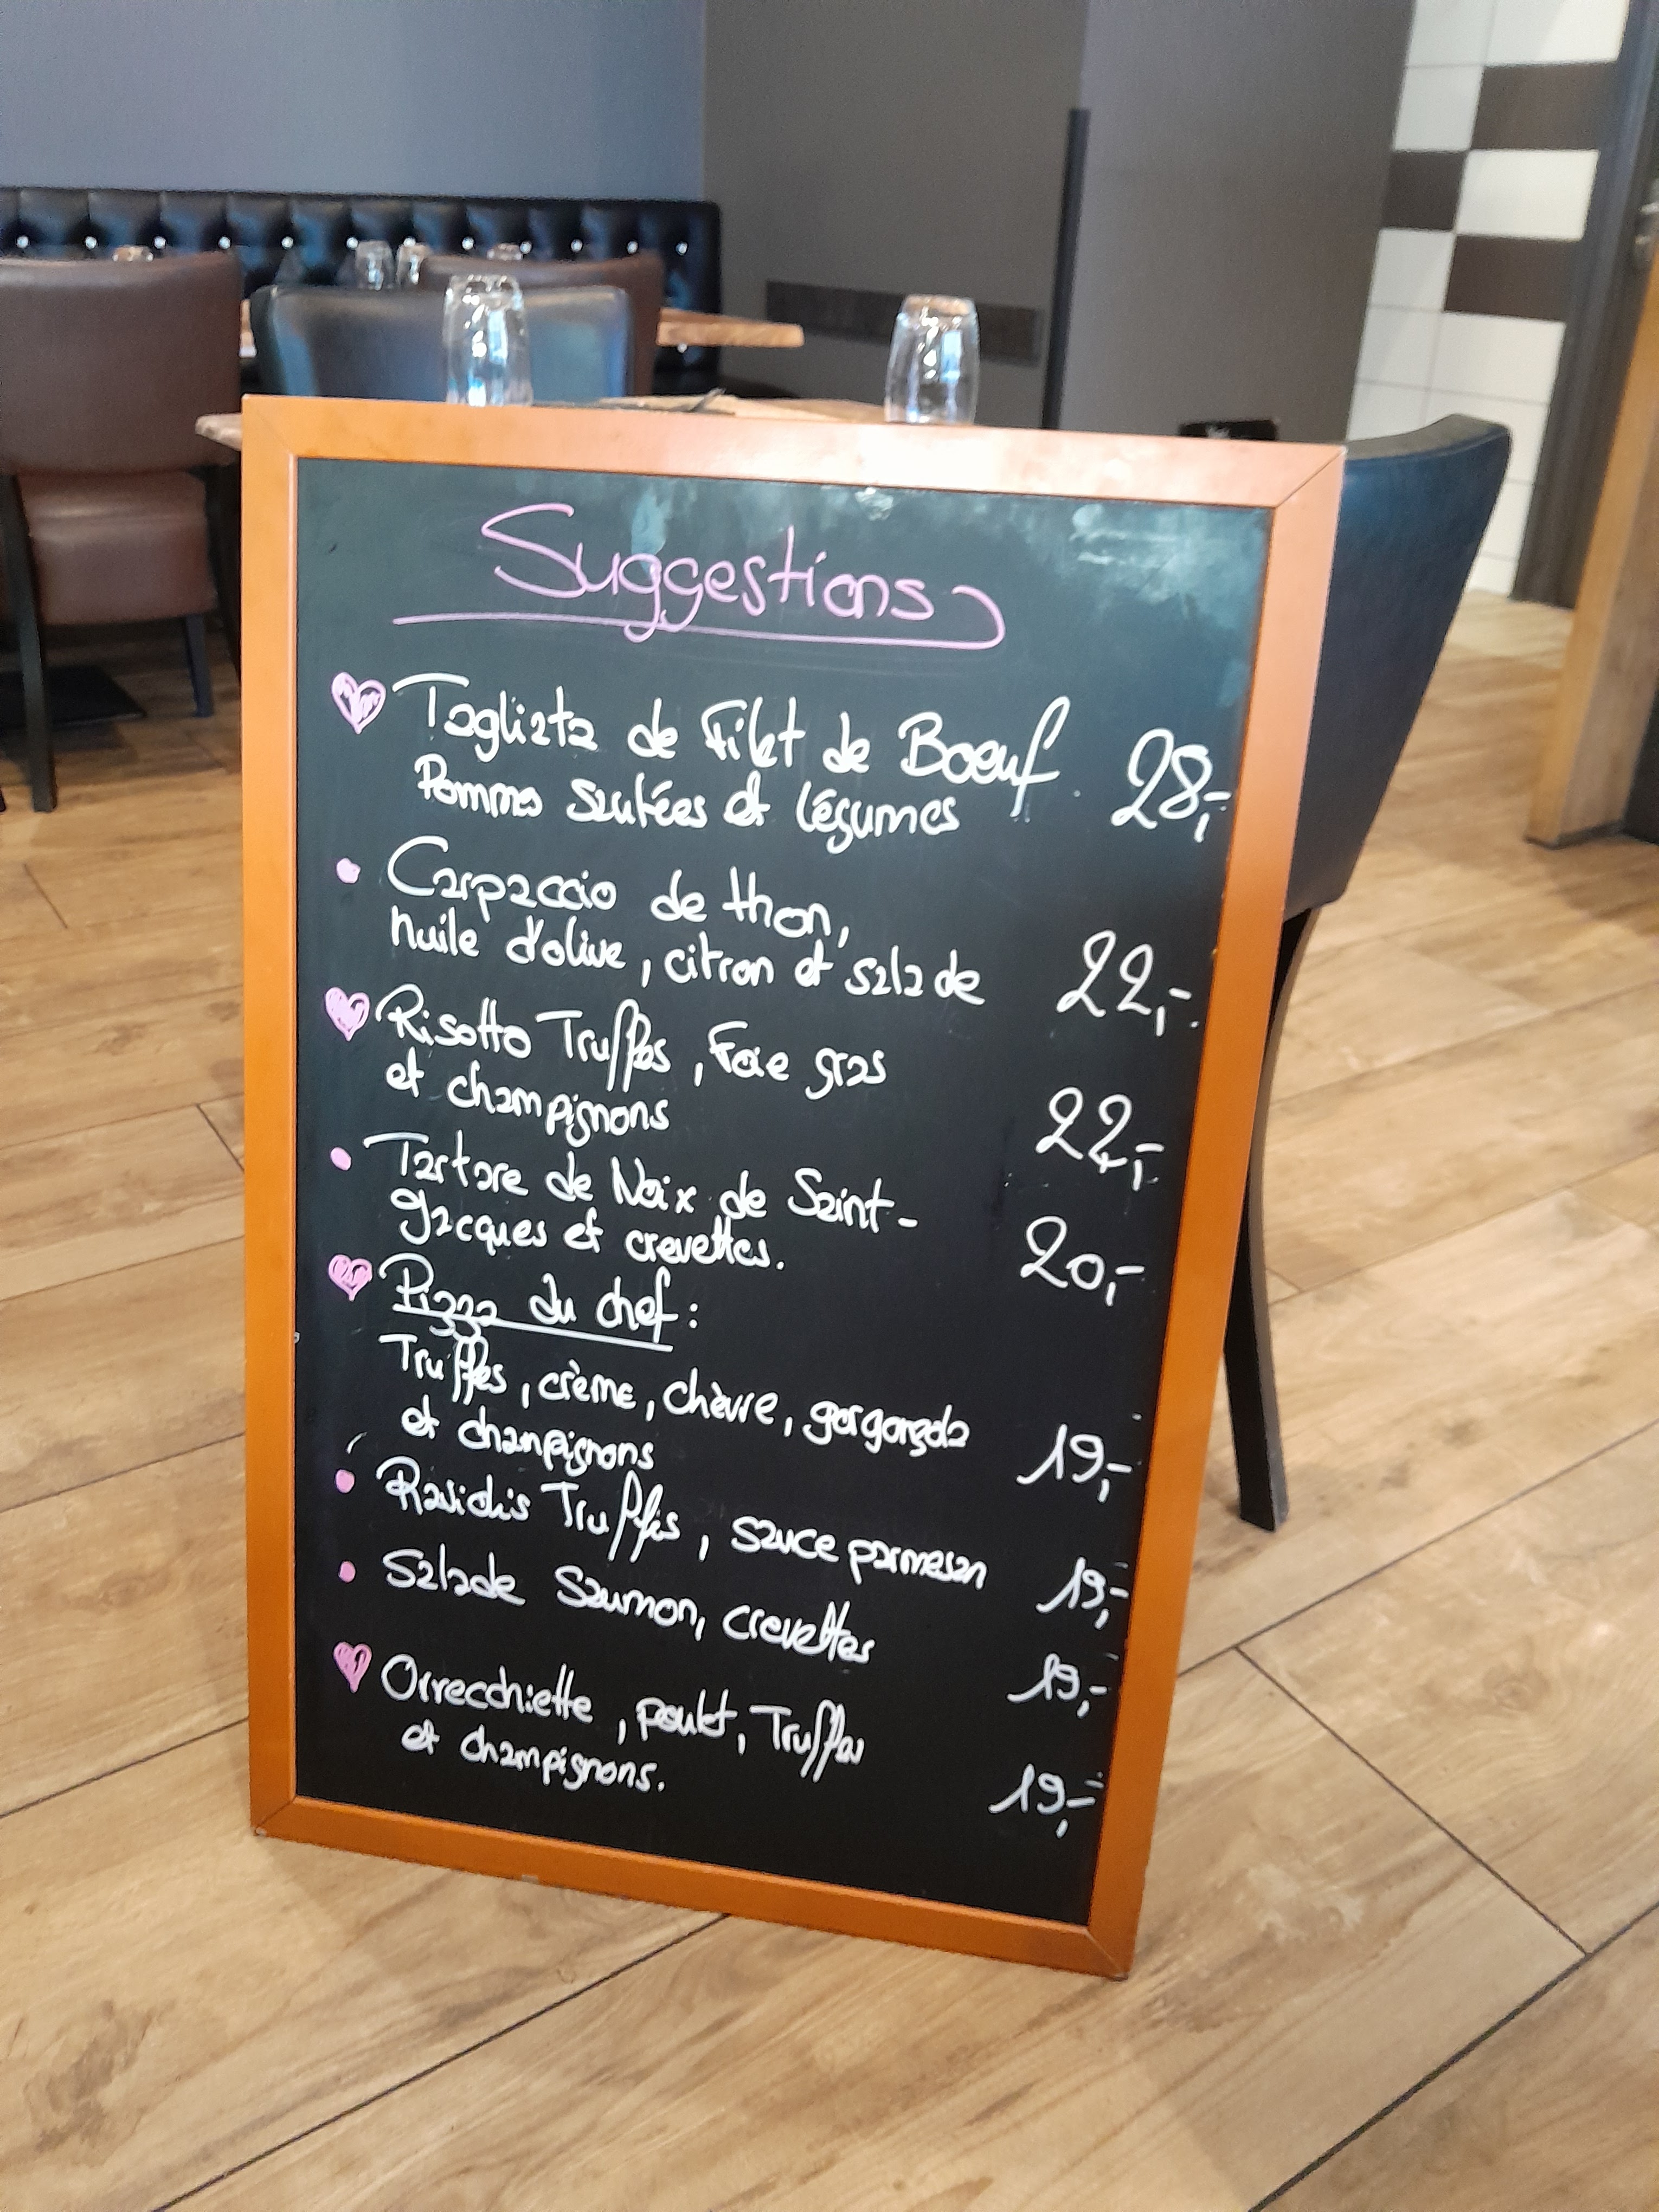 Suggestions
Tagliata de Filet de Boeuf 28,-
Pommes sautées et légumes
Carpaccio de thon,
huile d'olive, citron et salade 22,-
Risotto Truffes, Foie gras
et champignons 22,-
Tartare de Noix de Saint-
Jacques et crevettes. 20,-
Pizza du chef:
Truffes, crème, chèvre, gorgonzola
et champignons 19,-
Raviolis Truffes, sauce parmesan 19,-
Salade Saumon, crevettes 19,-
Orrecchiette, poulet, Truffes
et champignons. 19,-